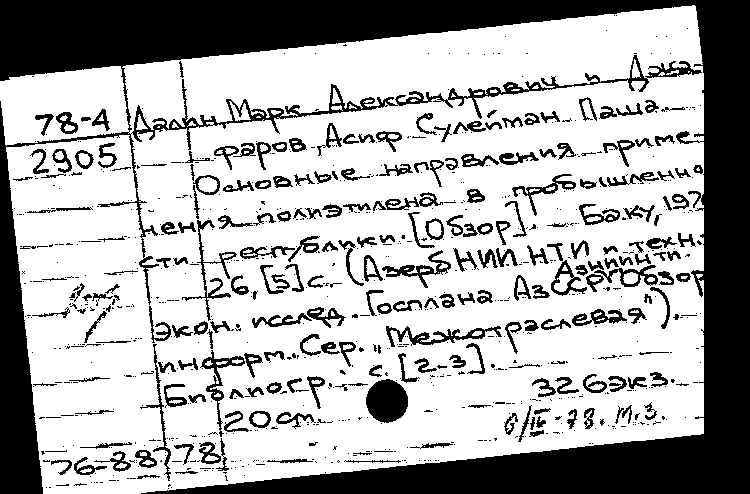 78-4 Далин, Марк Александрович и Джа-
2905 фаров, Асиф Сулейман Паша.
Основные направления приме-
нения полиэтилена в промышленно
сти республики. [Обзор]. - Баку, 197
26, [5] с. (АзербНИИ НТИ и техн.-
АзНИИНТИ.
экон. исслед. Госплана АзССР. Обзор
информ. Сер. "Межотраслевая").
Библиогр.: с. [2-3].
20 см. 326экз.
6/IV-78. М.З.
76-88778